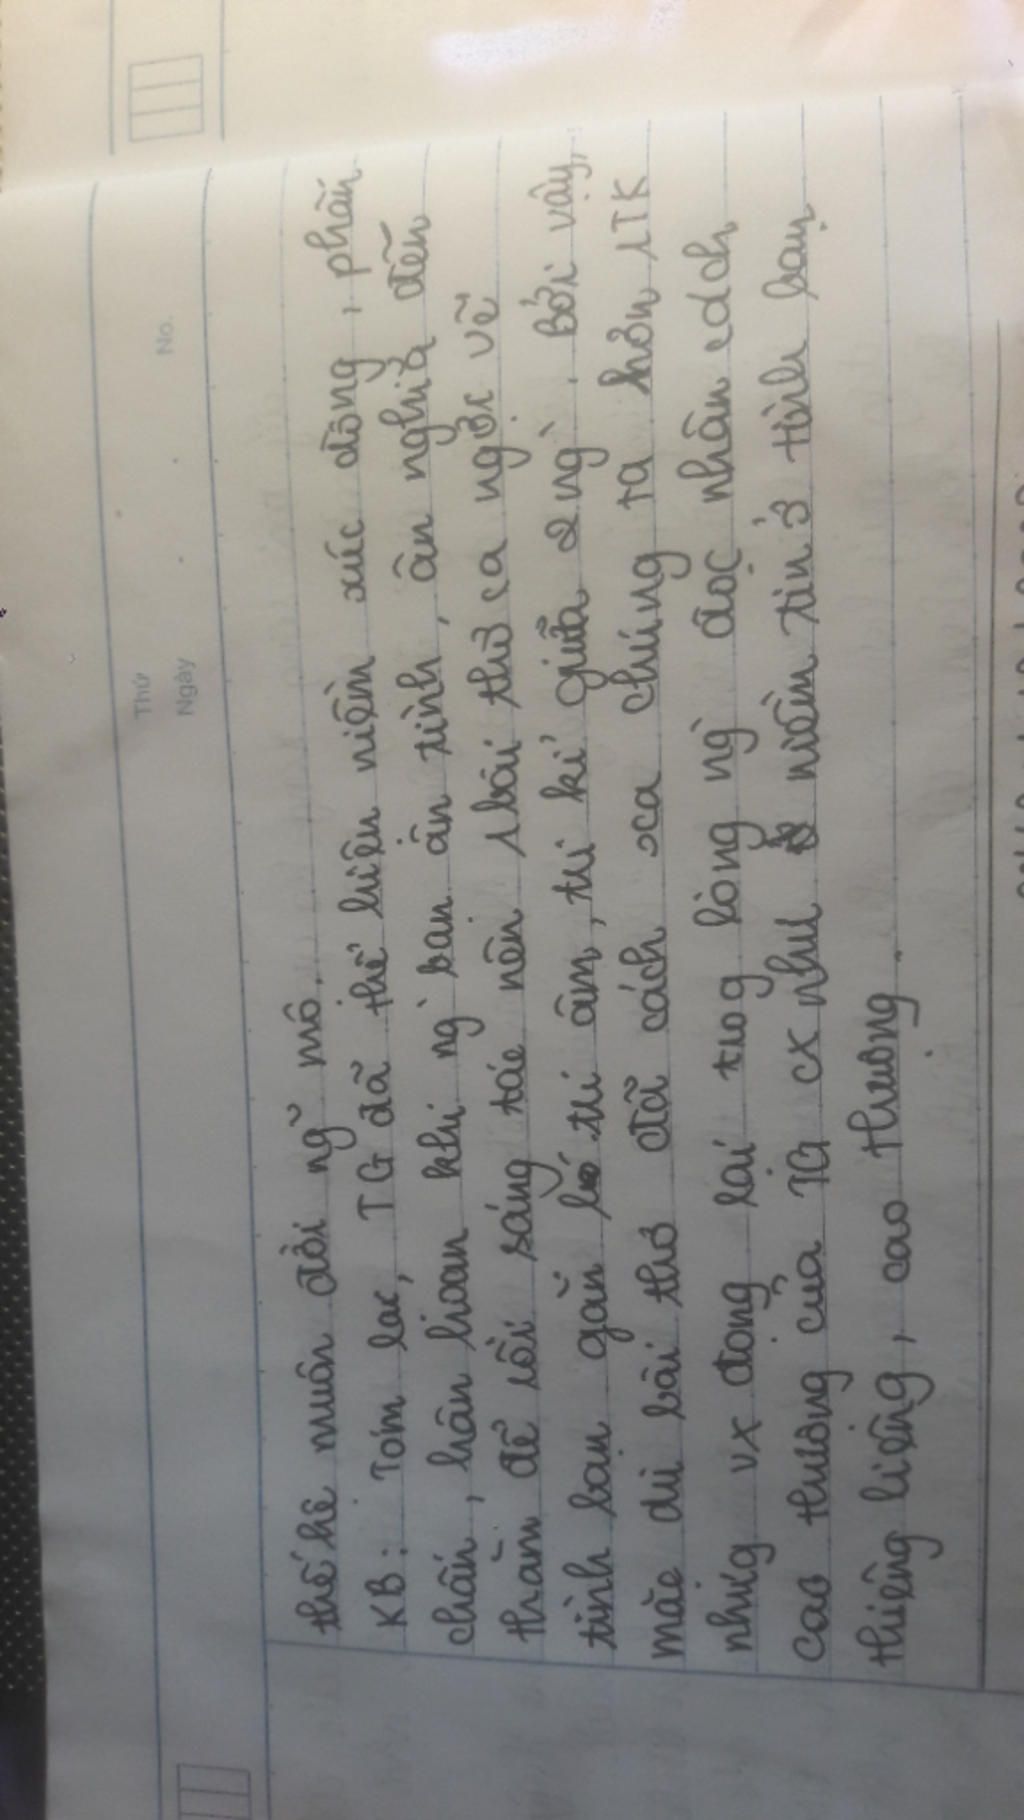 Thứ
Ngày
No.
thế hệ muôn đời ngữ mô.
KB: Tóm lại, TG đã thể hiện niềm xúc động, phấn
chấn, hân hoan khi ng` bạn ân tình, ân nghĩa đến
thăm để rồi sáng tác nên 1 bài thơ ca ngợi về
tình bạn gắn bó tri âm, tri kỉ giữa 2 ng`. Bởi vậy,
mặc dù bài thơ đã cách xa chúng ta hơn 1TK
nhưng vx đọng lại trog lòng ng` đọc nhân cách
cao thượng của TG cx như niềm tin ở tình bạn
thiêng liêng, cao thượng.